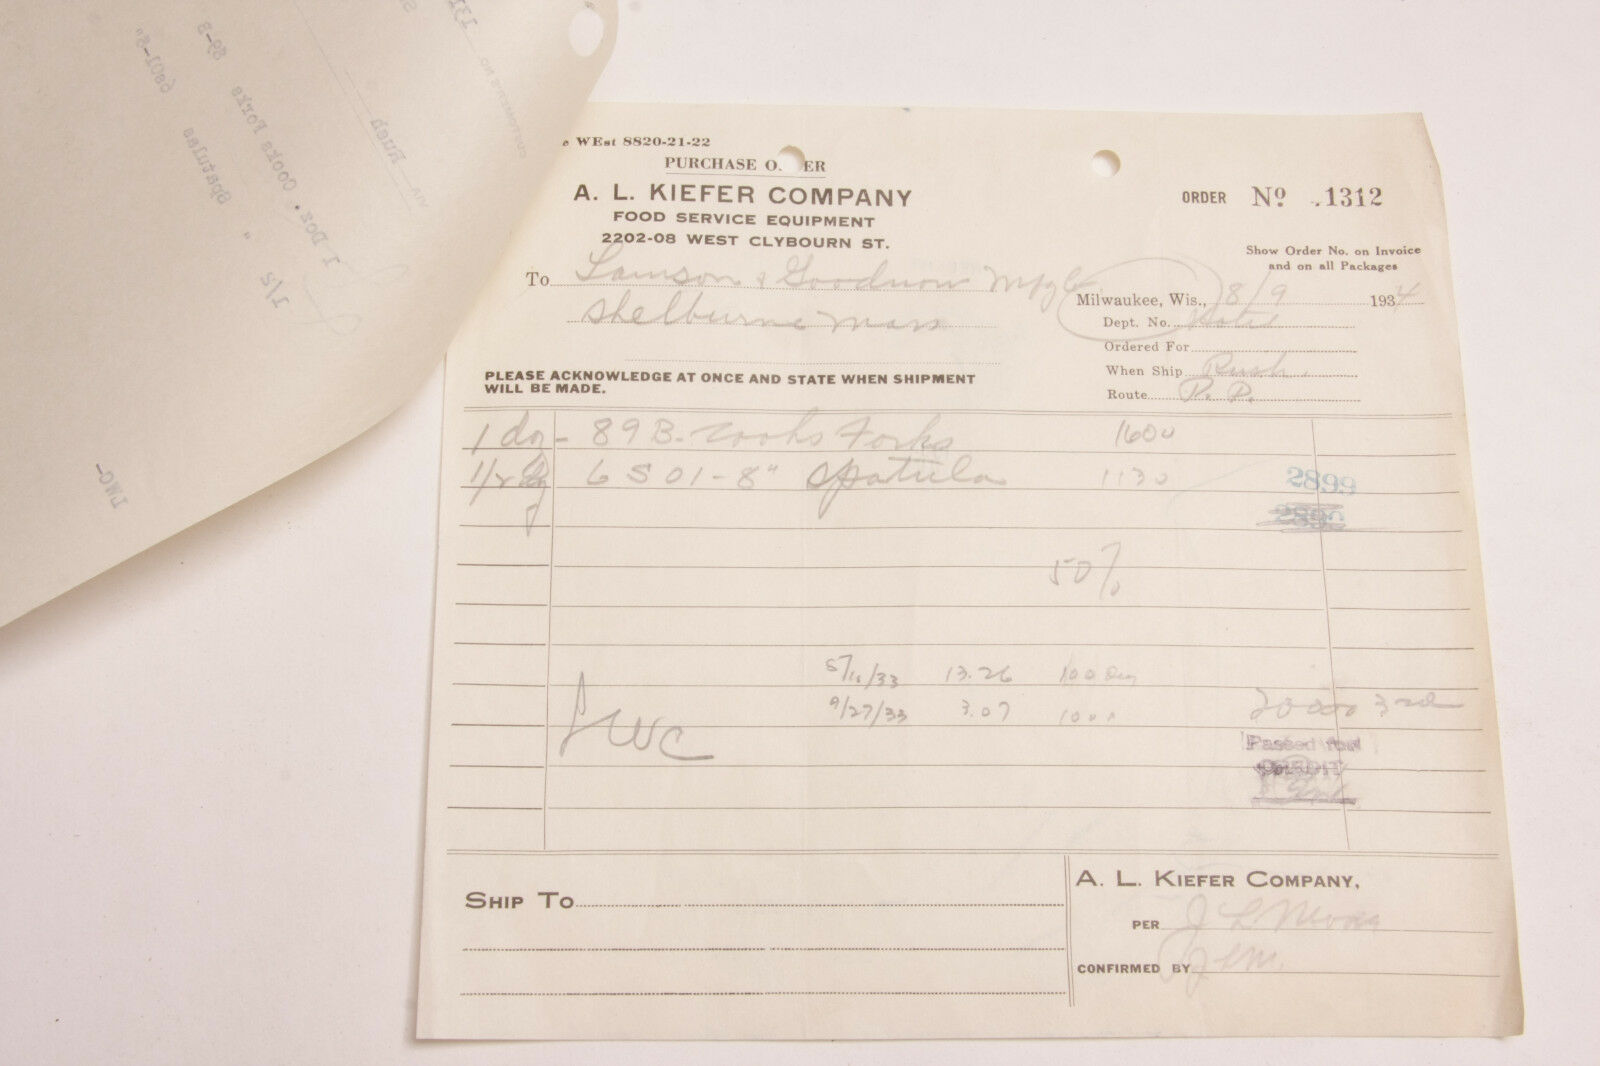 WEst 8820-21-22
PURCHASE O ER
A. L. KIEFER COMPANY
FOOD SERVICE EQUIPMENT
2202-08 WEST CLYBOURN ST.
ORDER Nº 1312
Show Order No. on Invoice
and on all Packages
To Lamson & Goodnow Mfg Co
Shelburne Mass
Milwaukee, Wis., 8/9 1934
Dept. No.
Ordered For
When Ship Rush.
Route P. P.
PLEASE ACKNOWLEDGE AT ONCE AND STATE WHEN SHIPMENT
WILL BE MADE.
1 doz - 89B - Cooks Forks 1600
1/2 dz 6801-8" Spatula 1130
2899
50%
5/11/33 13.26 100
9/27/33 3.07 100
LWC
20 000 3rd
Passed for
CREDIT
SHIP TO
A. L. KIEFER COMPANY,
PER J L
CONFIRMED BY
Rush
89-B
1 Doz. Cooks Forks
6801-8"
1/2 " Spatulas
LWC-